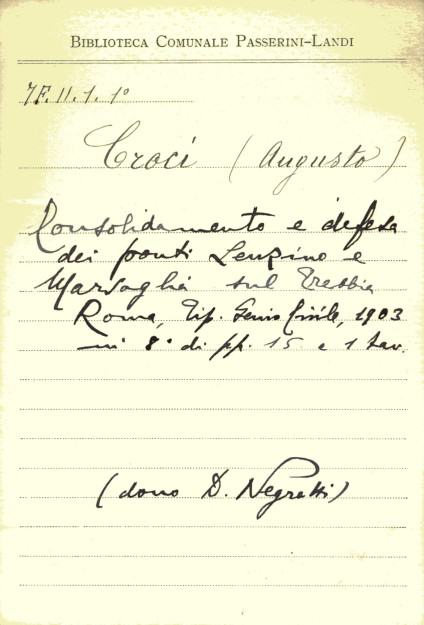 BIBLIOTECA COMUNALE PASSERINI-LANDI
7F. II. 1. 1º
Croci (Augusto)
Consolidamento e difesa
dei ponti Lenzino e
Marsaglia sul Trebbia
Roma, Tip. Genio Civile, 1903
in 8º di pp. 15 e 1 tav.
(dono D. Negratti)